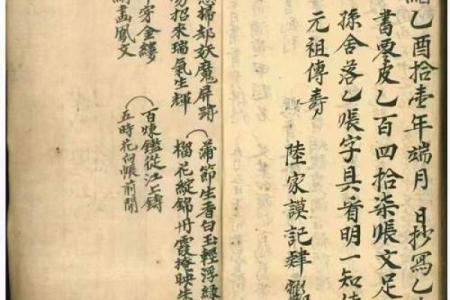 乙酉拾壹年端月 日抄寫乙
書要皮乙百四拾柒帳文足
孫舍落乙帳字具看明一知
元祖傳壽
陸家謨記肆
掃却妖魔屏跡
招來瑞氣生輝
蒲節生香白玉輕浮綠
榴花綻錦丹霞掩映朱
穿金縷
畫鳳文
百煉鑑從江上鑄
五時花向帳前開